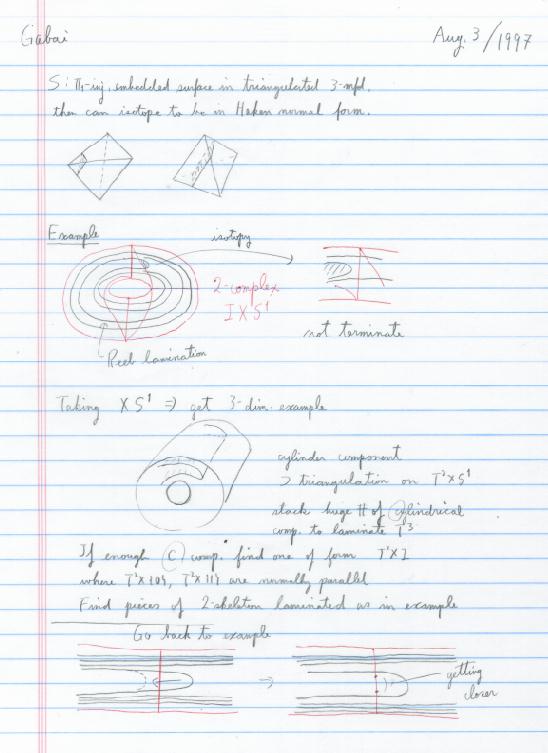 Gabai
Aug. 3/1997
S: π₁-inj. embedded surface in triangulated 3-mfd.
then can isotope to be in Haken normal form.
Example
isotopy
2-complex
I × S¹
not terminate
Reeb lamination
Taking × S¹ ⇒ get 3-dim. example
cylinder component
⊃ triangulation on T² × S¹
stack huge # of cylindrical
comp. to laminate T³
If enough C comp. find one of form T² × I
where T² × {0}, T² × {1} are normally parallel
Find pieces of 2-skeleton laminated as in example
Go back to example
getting
closer